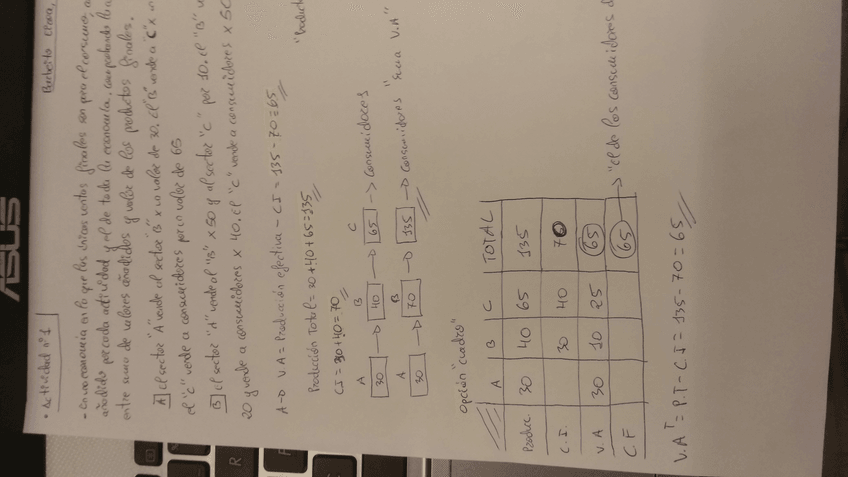 • Actividad nº 1
- En una economía en lo que los únicos ventas finales son para el consumo,
añadido por cada actividad y el de toda la economía, comprobando la
entre suma de valores añadidos y valor de los productos finales.
A] El sector "A" vende al sector "B" x un valor de 30. El "B" vende a "C" x
el "C" vende a consumidores por un valor de 65
B] El sector "A" vende al "B" x 50 y al sector "C" por 10. El "B"
20 y vende a consumidores x 40. El "C" vende a consumidores x 50
A → VA = Producción efectiva - CI = 135 - 70 = 65
Producción Total = 30 + 40 + 65 = 135
CI = 30 + 40 = 70
A B C
30 → 40 → 65 → Consumidores
A B
30 → 70 → 135 → Consumidores "Suma V.A"
Opción "cuadro"
A B C TOTAL
Produc. 30 40 65 135
C.I. 30 40 70
V.A 30 10 25 65
C.F 65 → "el de los consumidores
V.A^T = P.T - C.I = 135 - 70 = 65
ASUS
R
F